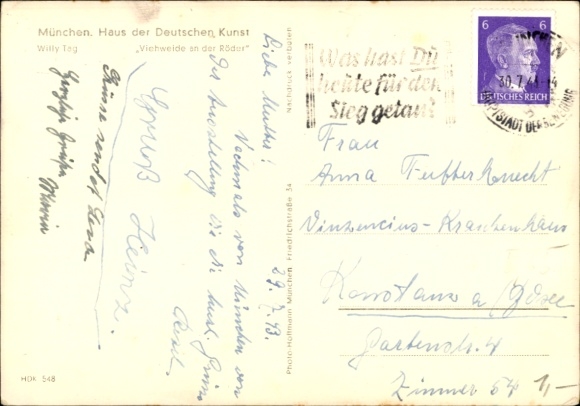 München. Haus der Deutschen Kunst
Willy Tag „Viehweide an der Röder"
Nachdruck verboten
Photo-Hoffmann München, Friedrichstraße 34
HDK 548
Was hast Du
heute für den
Sieg getan?
6 6
DEUTSCHES REICH
MÜNCHEN
30.7.43.-14
HAUPTSTADT DER BEWEGUNG
29.7.43.
Liebe Mutter!
Nochmals von München von
der Ausstellung die
Gruß Heinz.
Grüsse sendet
Herzliche Grüße
Frau
Anna Futterknecht
Vinzencius-Krankenhaus
Konstanz a/Bdsee
Gartenstr. 4
Zimmer 54
1,-